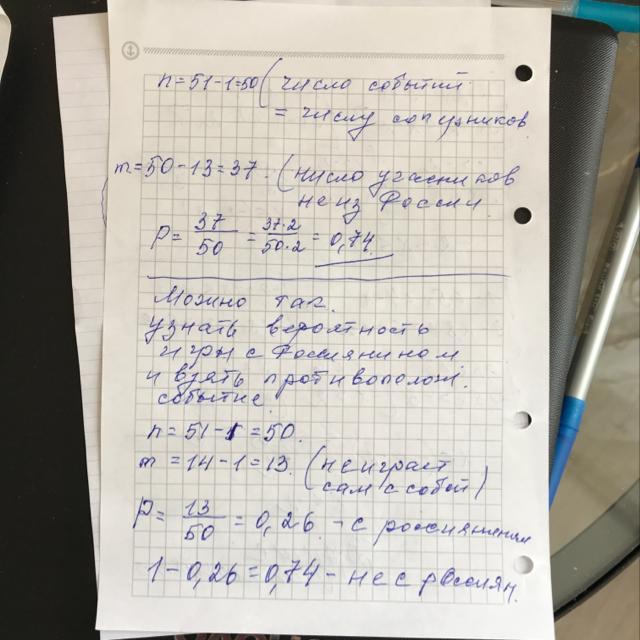 n=51-1=50 (число событий
= числу соперников
m=50-13=37. (число участников
не из России.
P= 37/50 = 37·2/50·2 = 0,74.
Можно так.
узнать вероятность
игры с Россиянином
и взять противополож.
событие.
n=51-1=50.
m=14-1=13. (не играет
сам с собой)
P= 13/50 = 0,26 - с россиянином
1-0,26=0,74 - не с россиян.